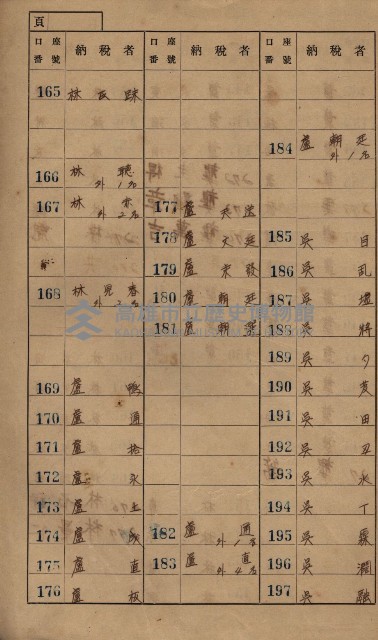 頁
口座番號 納稅者
165 林
166 林 聰 外1名
167 林 外2名
168 林 兜春 外2名
169 盧 鴨
170 盧 通
171 盧 拾
172 盧 永
173 盧 土
174 盧 成
175 盧 直
176 盧 板
口座番號 納稅者
177 盧
178 盧 文廷
179 盧 發
180 盧 朝廷
181 盧 朝
182 盧 通 外1名
183 盧 直 外4名
口座番號 納稅者
184 盧 朝廷 外1名
185 吳 目
186 吳 乱
187 吳
188 吳 將
189 吳
190 吳
191 吳 田
192 吳 丑
193 吳 永
194 吳 丁
195 吳 霖
196 吳 潤
197 吳 融
高雄市立歷史博物館